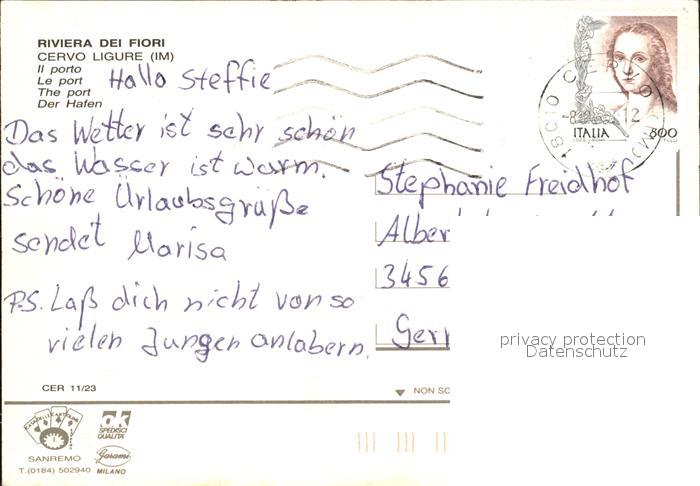 RIVIERA DEI FIORI
CERVO LIGURE (IM)
Il porto
Le port
The port
Der Hafen
Hallo Steffie
Das Wetter ist sehr schön
das Wasser ist warm.
Schöne Urlaubsgrüße
sendet Marisa
P.S. Laß dich nicht von so
vielen Jungen anlabern.
ITALIA 800
18010 CERVO
12
Stephanie Freidhof
Alber
3456
Ger
privacy protection
Datenschutz
CER 11/23
NON SC
SANREMO
T.(0184) 502940
OK
SPEDISCI
QUALITA'
Garami
MILANO